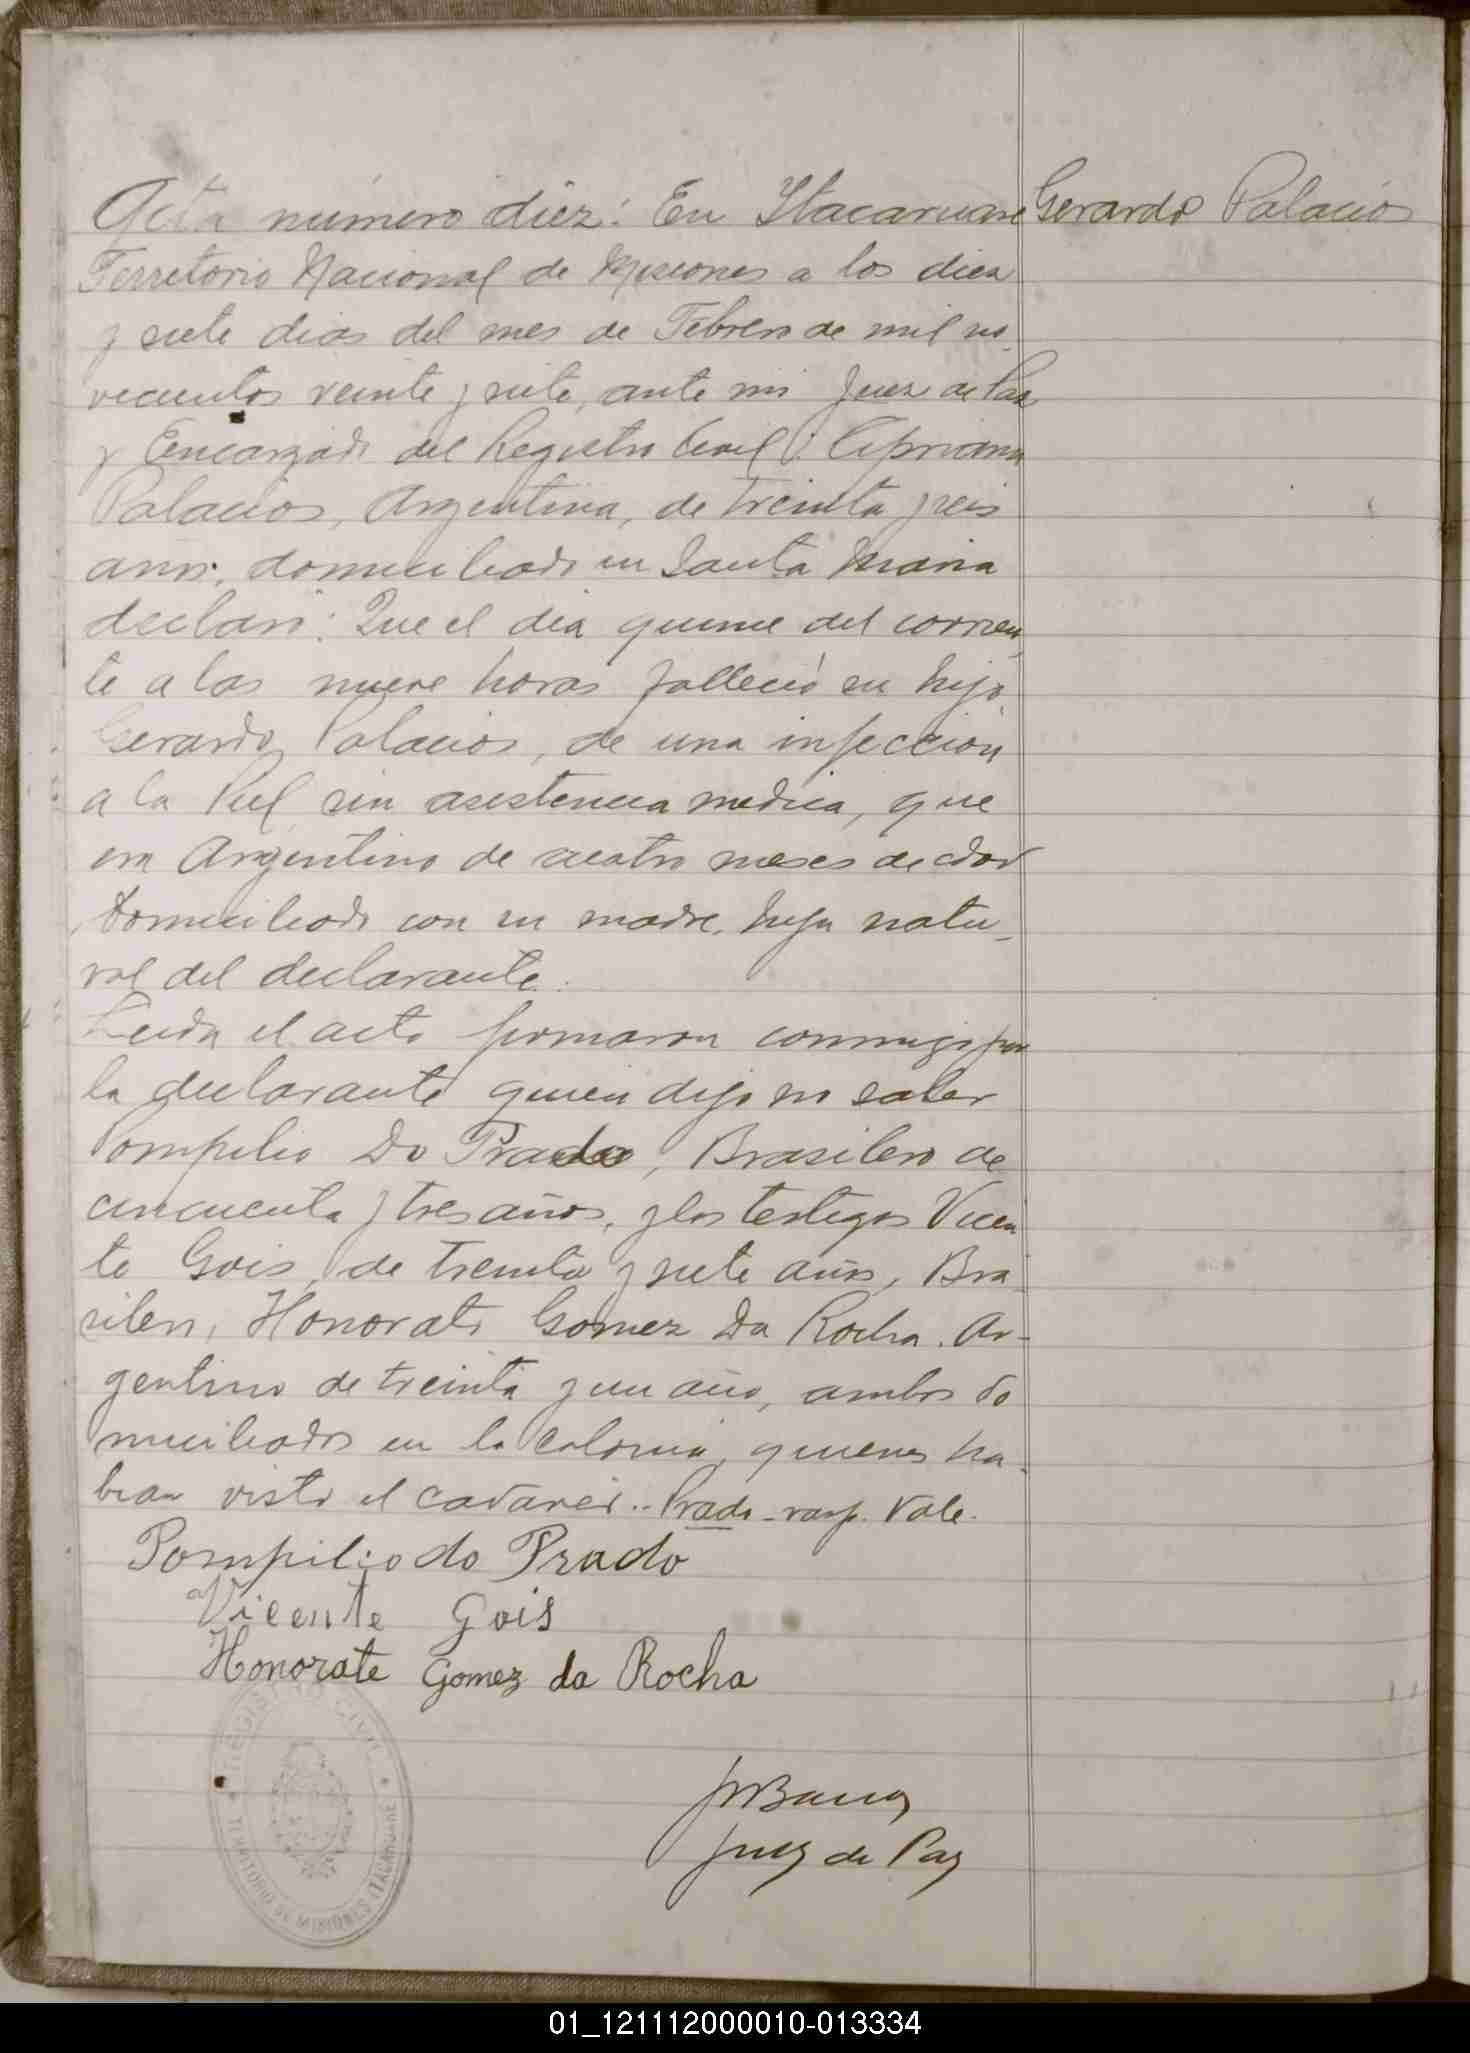 Acta número diez: En Itacaruare
Gerardo Palacios
Territorio Nacional de Misiones a los diez
y siete dias del mes de Febrero de mil no-
vecientos veinte y siete, ante mi Juez de Paz
y Encargado del Registro Civil: Cipriana
Palacios, Argentina, de treinta y seis
años, domiciliado en Santa Maria
declaró: Que el dia quince del corrien-
te a las nueve horas falleció su hijo
Gerardo Palacios, de una infeccion
a la Piel sin asistencia medica, que
era Argentino de cuatro meses de edad
Domiciliado con su madre, hijo natu-
ral del declarante.
Leida el acta firmaron conmigo por
la declarante quien dijo no saber
Pompilio Do Prado, Brasilero de
cincuenta y tres años, y los testigos Vicen
te Gois, de treinta y siete años, Bra-
silero, Honorato Gomez Da Rocha. Ar-
gentino de treinta y un año, ambos do
miciliados en la Colonia, quienes ha-
bian visto el cadaver.. Prado - rasp. Vale.
Pompilio do Prado
Vicente Gois
Honorate Gomez da Rocha
REGISTRO CIVIL
TERRITORIO DE MISIONES ITACARUARE
Juez de Paz
01_121112000010-013334